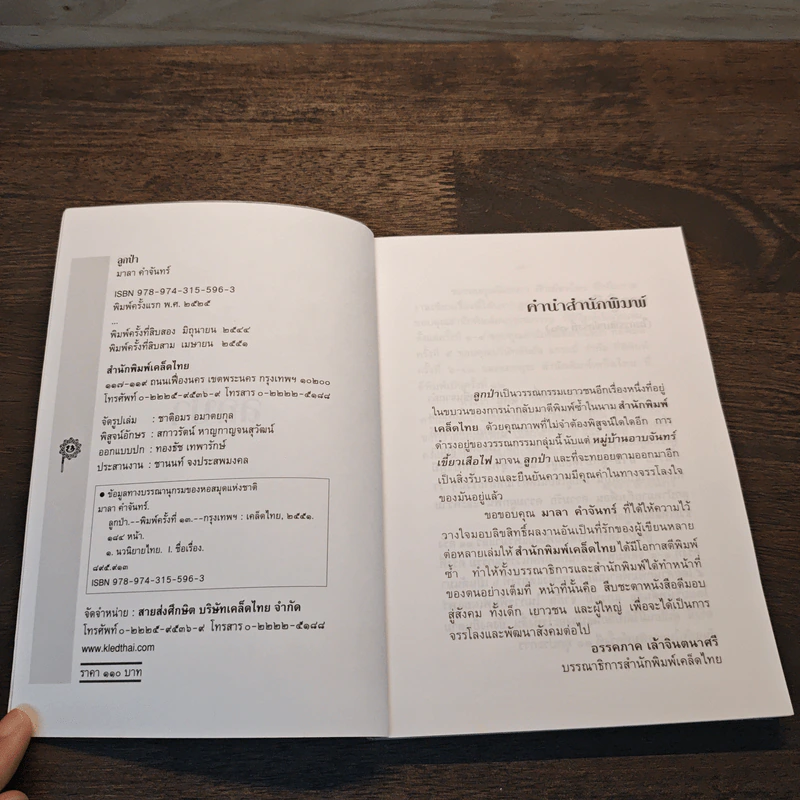 ลูกป่า
มาลา คำจันทร์
ISBN 978-974-315-596-3
พิมพ์ครั้งแรก พ.ศ. ๒๕๒๕
...
พิมพ์ครั้งที่สิบสอง มิถุนายน ๒๕๔๔
พิมพ์ครั้งที่สิบสาม เมษายน ๒๕๕๑
สำนักพิมพ์เคล็ดไทย
๑๑๗-๑๑๙ ถนนเฟื่องนคร เขตพระนคร กรุงเทพฯ ๑๐๒๐๐
โทรศัพท์ ๐-๒๒๒๕-๙๕๓๖-๙ โทรสาร ๐-๒๒๒๒-๕๑๘๘
จัดรูปเล่ม : ชาติอมร อมาตยกุล
พิสูจน์อักษร : สกาวรัตน์ หาญกาญจนสุวัฒน์
ออกแบบปก : ทองธัช เทพารักษ์
ประสานงาน : ชานนท์ จงประสพมงคล
● ข้อมูลทางบรรณานุกรมของหอสมุดแห่งชาติ
มาลา คำจันทร์.
ลูกป่า.--พิมพ์ครั้งที่ ๑๓.--กรุงเทพฯ : เคล็ดไทย, ๒๕๕๑.
๑๘๔ หน้า.
๑. นวนิยายไทย. I. ชื่อเรื่อง.
๘๙๕.๙๑๓
ISBN 978-974-315-596-3
จัดจำหน่าย : สายส่งศึกษิต บริษัทเคล็ดไทย จำกัด
โทรศัพท์ ๐-๒๒๒๕-๙๕๓๖-๙ โทรสาร ๐-๒๒๒๒-๕๑๘๘
www.kledthai.com
ราคา ๑๑๐ บาท
คำนำสำนักพิมพ์
ลูกป่าเป็นวรรณกรรมเยาวชนอีกเรื่องหนึ่งที่อยู่
ในขบวนของการนำกลับมาตีพิมพ์ซ้ำในนาม สำนักพิมพ์
เคล็ดไทย ด้วยคุณภาพที่ไม่จำต้องพิสูจน์ใดใดอีก การ
ดำรงอยู่ของวรรณกรรมกลุ่มนี้ นับแต่ หมู่บ้านอาบจันทร์
เขี้ยวเสือไฟ มาจน ลูกป่า และที่จะทยอยตามออกมาอีก
เป็นสิ่งรับรองและยืนยันความมีคุณค่าในทางจรรโลงใจ
ของมันอยู่แล้ว
ขอขอบคุณ มาลา คำจันทร์ ที่ได้ให้ความไว้
วางใจมอบลิขสิทธิ์ผลงานอันเป็นที่รักของผู้เขียนหลาย
ต่อหลายเล่มให้ สำนักพิมพ์เคล็ดไทย ได้มีโอกาสตีพิมพ์
ซ้ำ ทำให้ทั้งบรรณาธิการและสำนักพิมพ์ได้ทำหน้าที่
ของตนอย่างเต็มที่ หน้าที่นั้นคือ สืบชะตาหนังสือดีมอบ
สู่สังคม ทั้งเด็ก เยาวชน และผู้ใหญ่ เพื่อจะได้เป็นการ
จรรโลงและพัฒนาสังคมต่อไป
อรรคภาค เล้าจินตนาศรี
บรรณาธิการสำนักพิมพ์เคล็ดไทย